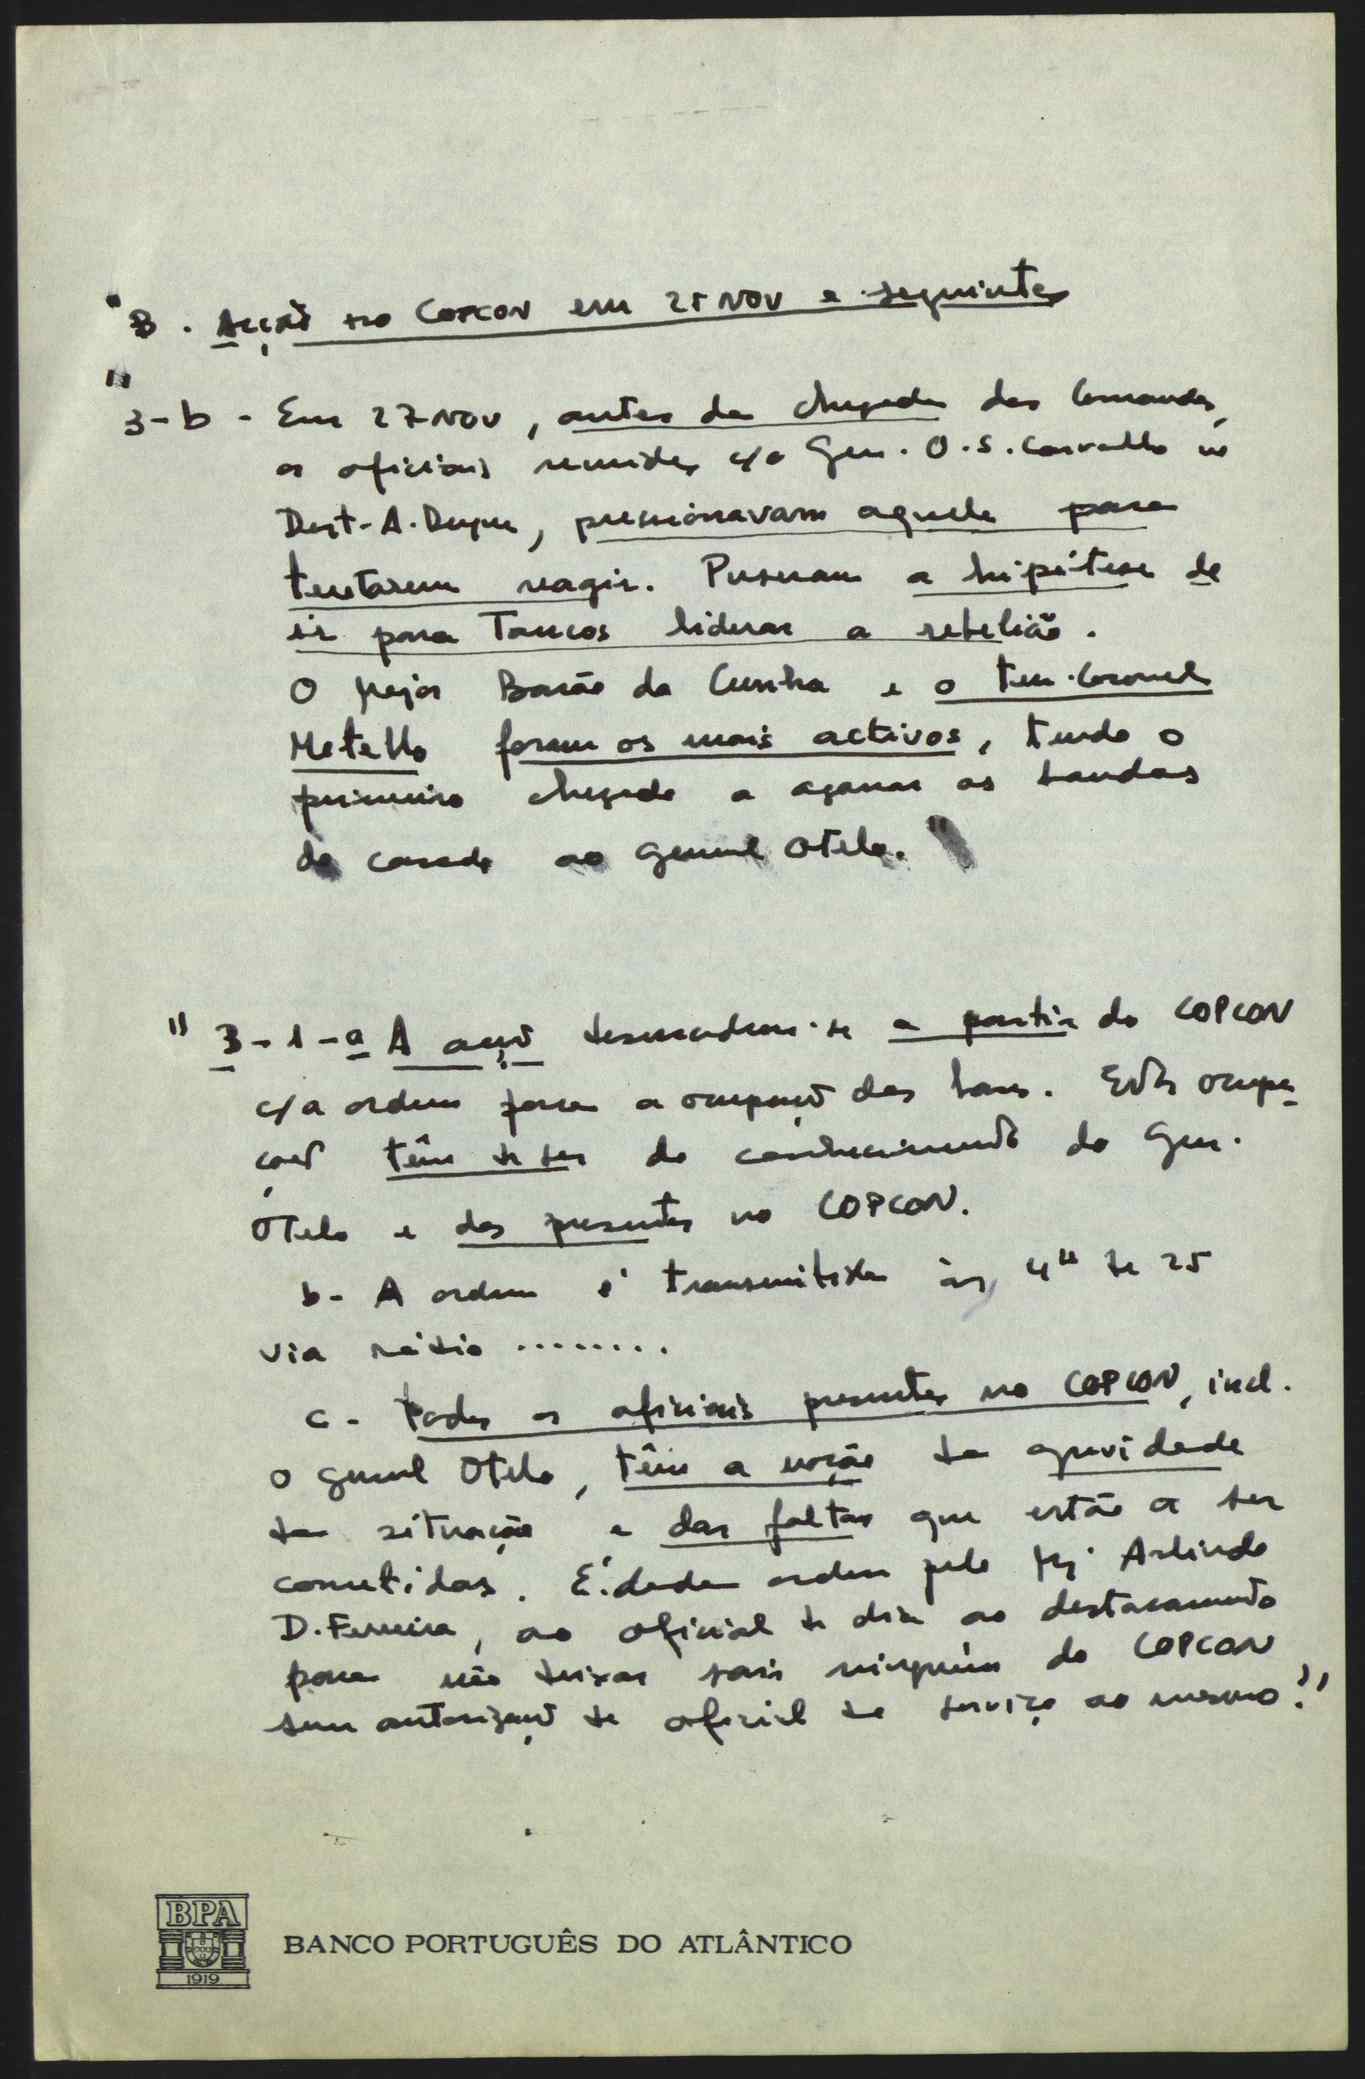 "B. Acção no COPCON em 25 NOV e seguintes
"3-b - Em 27 NOV, antes da chegada dos Comandos,
os oficiais reunidos c/o Gen. O.S. Carvalho no
Dest. A. Duque, pressionavam aquele para
tentarem reagir. Puseram a hipótese de
ir para Tancos liderar a rebelião.
O Major Barão da Cunha e o Ten. Coronel
Metello foram os mais activos, tendo o
primeiro chegado a agarrar as bandas
do casaco ao general Otelo."
"3-1-a A acção desencadeou-se a partir do COPCON
c/a ordem para a ocupação das bases. Estas ocupa-
ções têm de ser do conhecimento do Gen.
Otelo e dos presentes no COPCON.
b - A ordem é transmitida às 4H de 25
via rádio ........
c - Todos os oficiais presentes no COPCON, incl.
o general Otelo, têm a noção da gravidade
da situação e das faltas que estão a ser
cometidas. É dada ordem pelo Maj Arlindo
D. Ferreira, ao oficial de dia ao destacamento
para não deixar sair ninguém do COPCON
sem autorização do oficial de serviço ao mesmo."
BPA
1919
BANCO PORTUGUÊS DO ATLÂNTICO